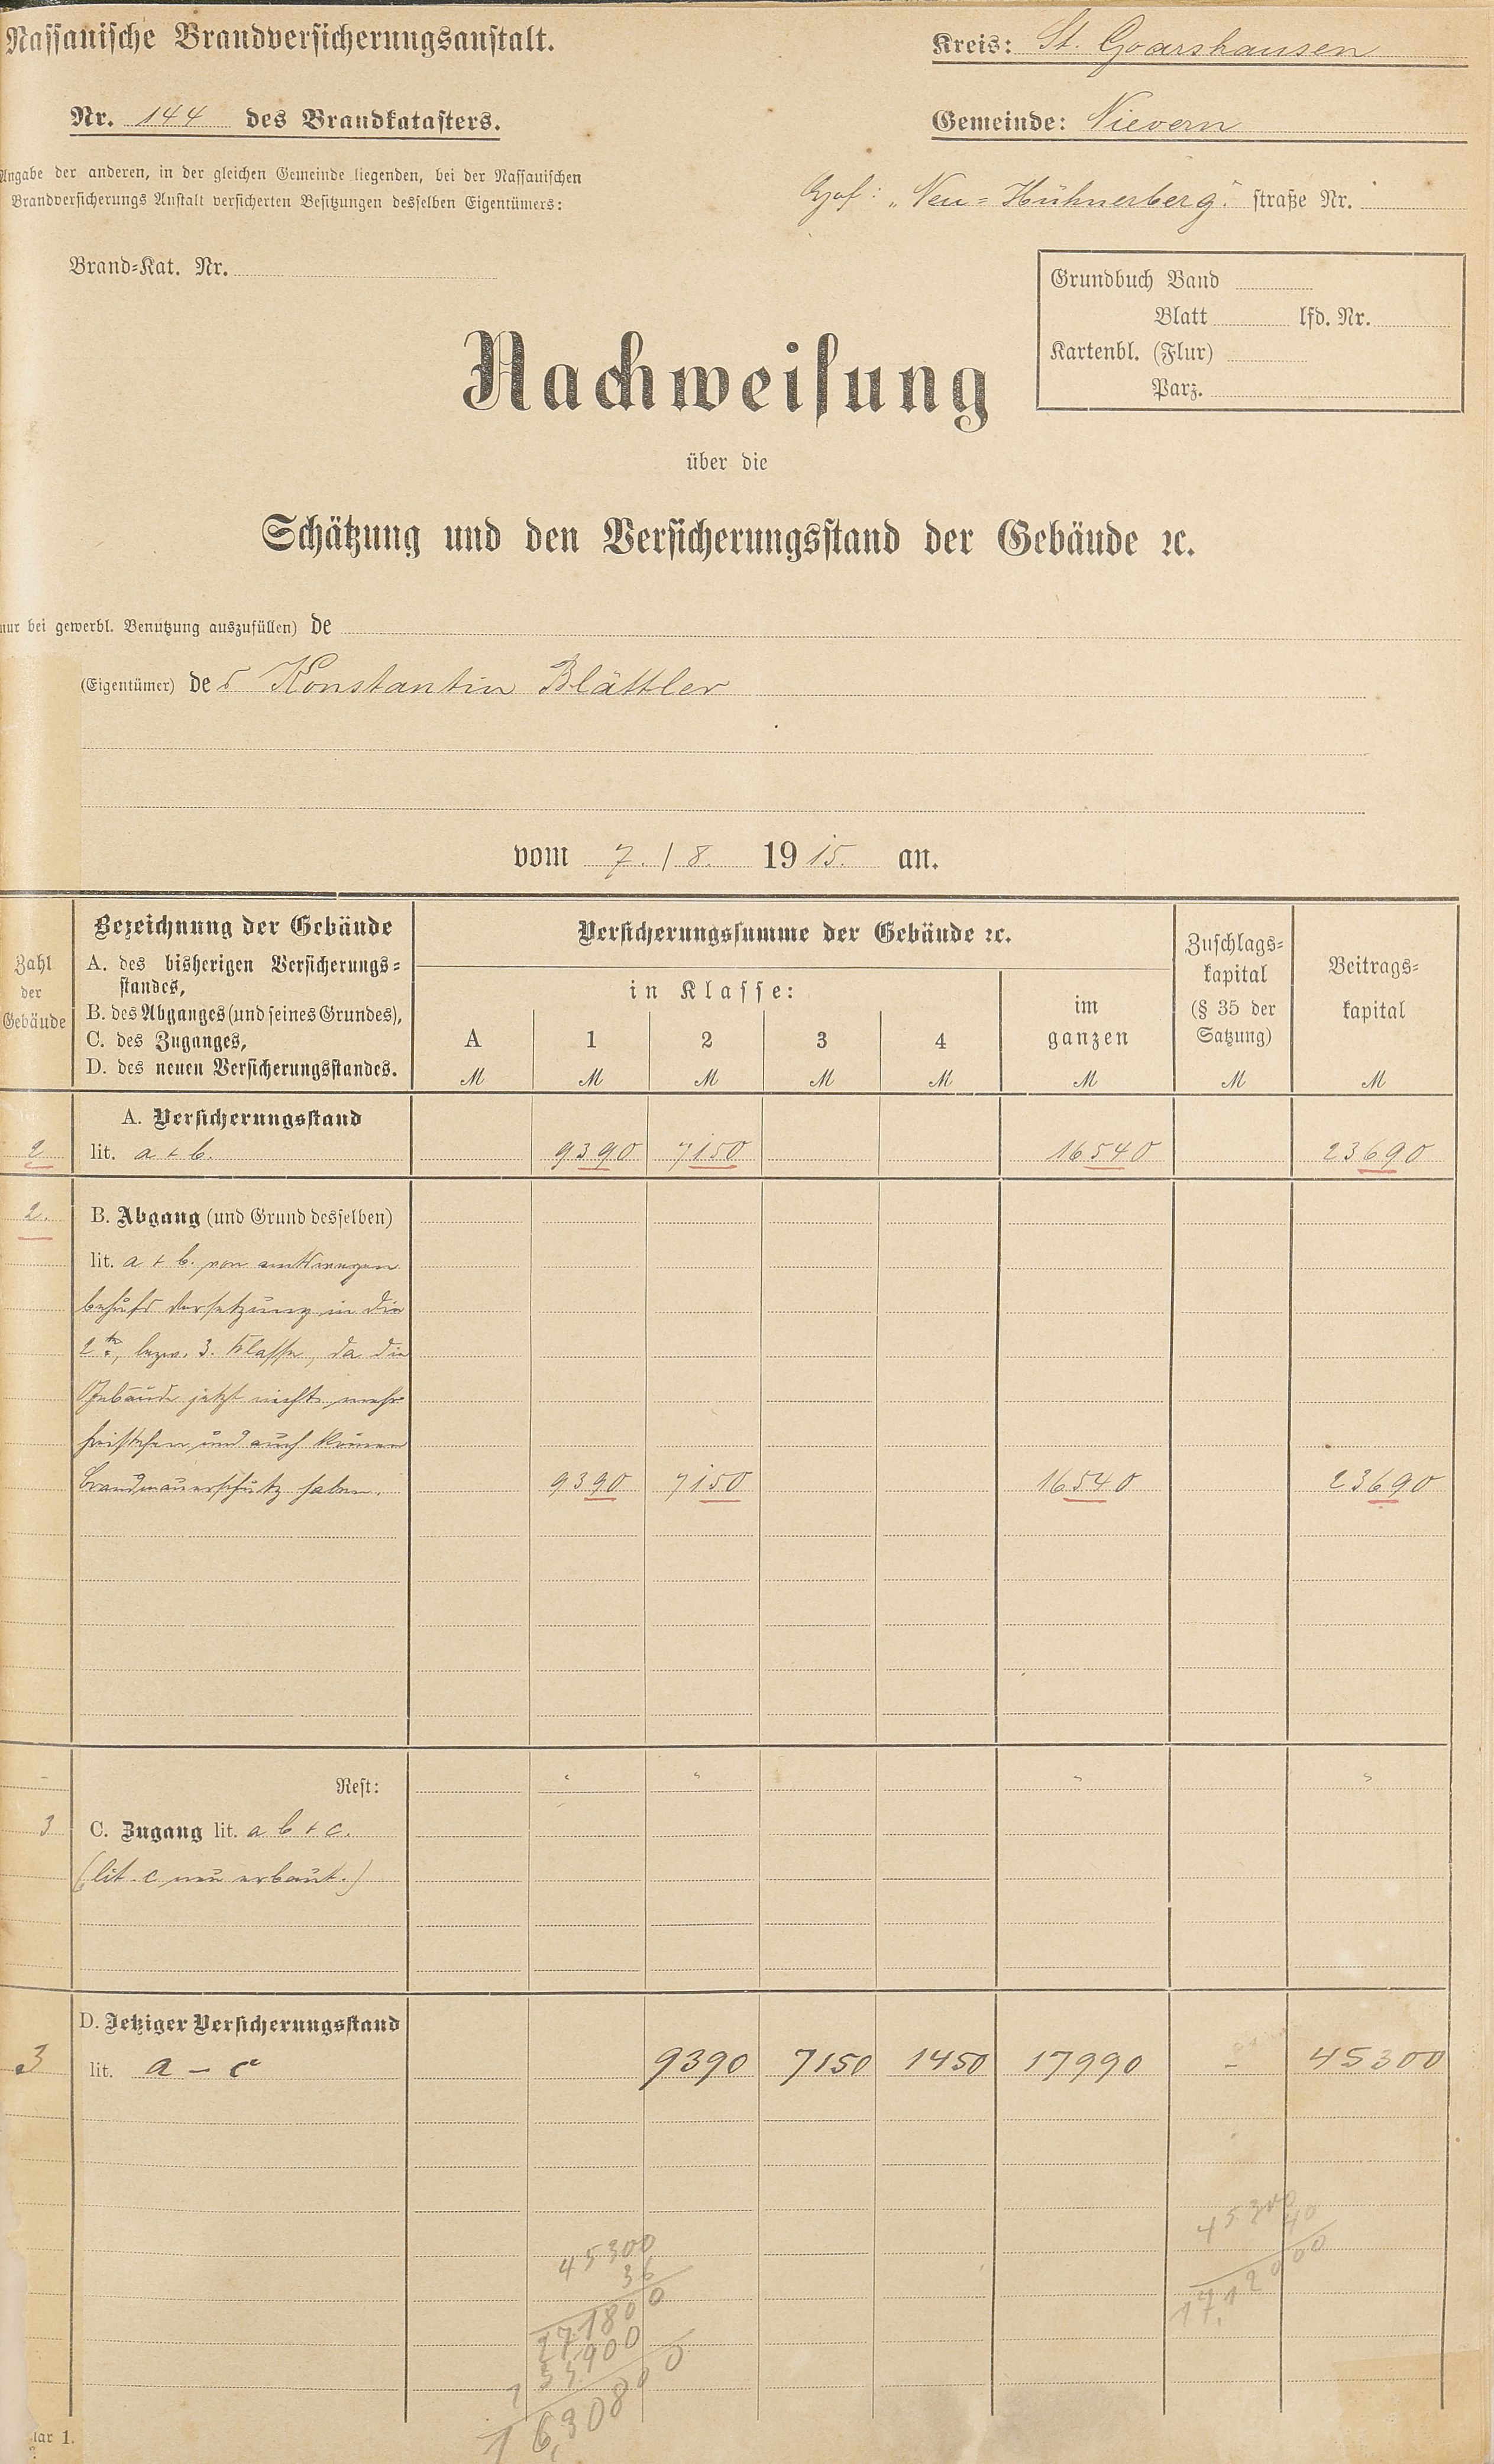 Nassauische Brandversicherungsanstalt.
Kreis: St. Goarshausen
Nr. 144 des Brandkatasters.
Gemeinde: Nievern
Angabe der anderen, in der gleichen Gemeinde liegenden, bei der Nassauischen
Brandversicherungs Anstalt versicherten Besitzungen desselben Eigentümers:
Hof: „Neu=Hühnerberg." straße Nr.
Brand=Kat. Nr.
Grundbuch Band
Blatt lfd. Nr.
Kartenbl. (Flur)
Parz.
Nachweisung
über die
Schätzung und den Versicherungsstand der Gebäude ꝛc.
nur bei gewerbl. Benutzung auszufüllen) de
(Eigentümer) des Konstantin Blättler
vom 7. / 8. 1915. an.
Zahl
der
Gebäude
Bezeichnung der Gebäude
A. des bisherigen Versicherungs=
standes,
B. des Abganges (und seines Grundes),
C. des Zuganges,
D. des neuen Versicherungsstandes.
Versicherungssumme der Gebäude ꝛc.
in Klasse:
A 1 2 3 4
im
ganzen
M M M M M M M M
Zuschlags=
kapital
(§ 35 der
Satzung)
Beitrags=
kapital
A. Versicherungsstand
2 lit. a + b. 9390 7150 16540 23690
2. B. Abgang (und Grund desselben)
lit. a + b. von
behufs Versetzung in die
2te, bezw. 3. Klasse, da die
Gebäude jetzt nicht mehr
freistehen und auch keinen
Brandmauerschutz haben. 9390 7150 16540 23690
Rest:
3 C. Zugang lit. a b + c.
(lit. c neu erbaut.)
D. Jetziger Versicherungsstand
3 lit. a – c 9390 7150 1450 17990 – 45300
45300
36
45300
40